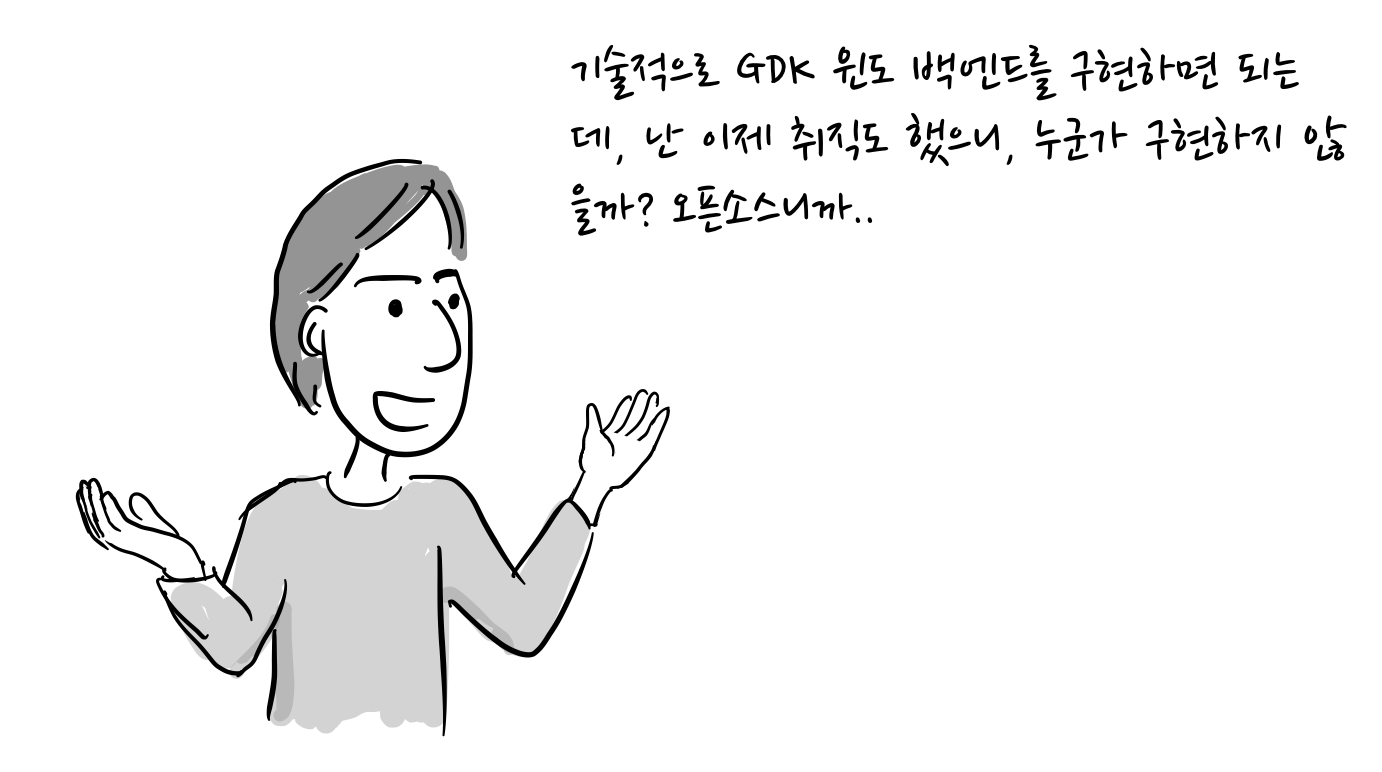 기술적으로 GDK 윈도 백엔드를 구현하면 되는
데, 난 이제 취직도 했으니, 누군가 구현하지 않
을까? 오픈소스니까..